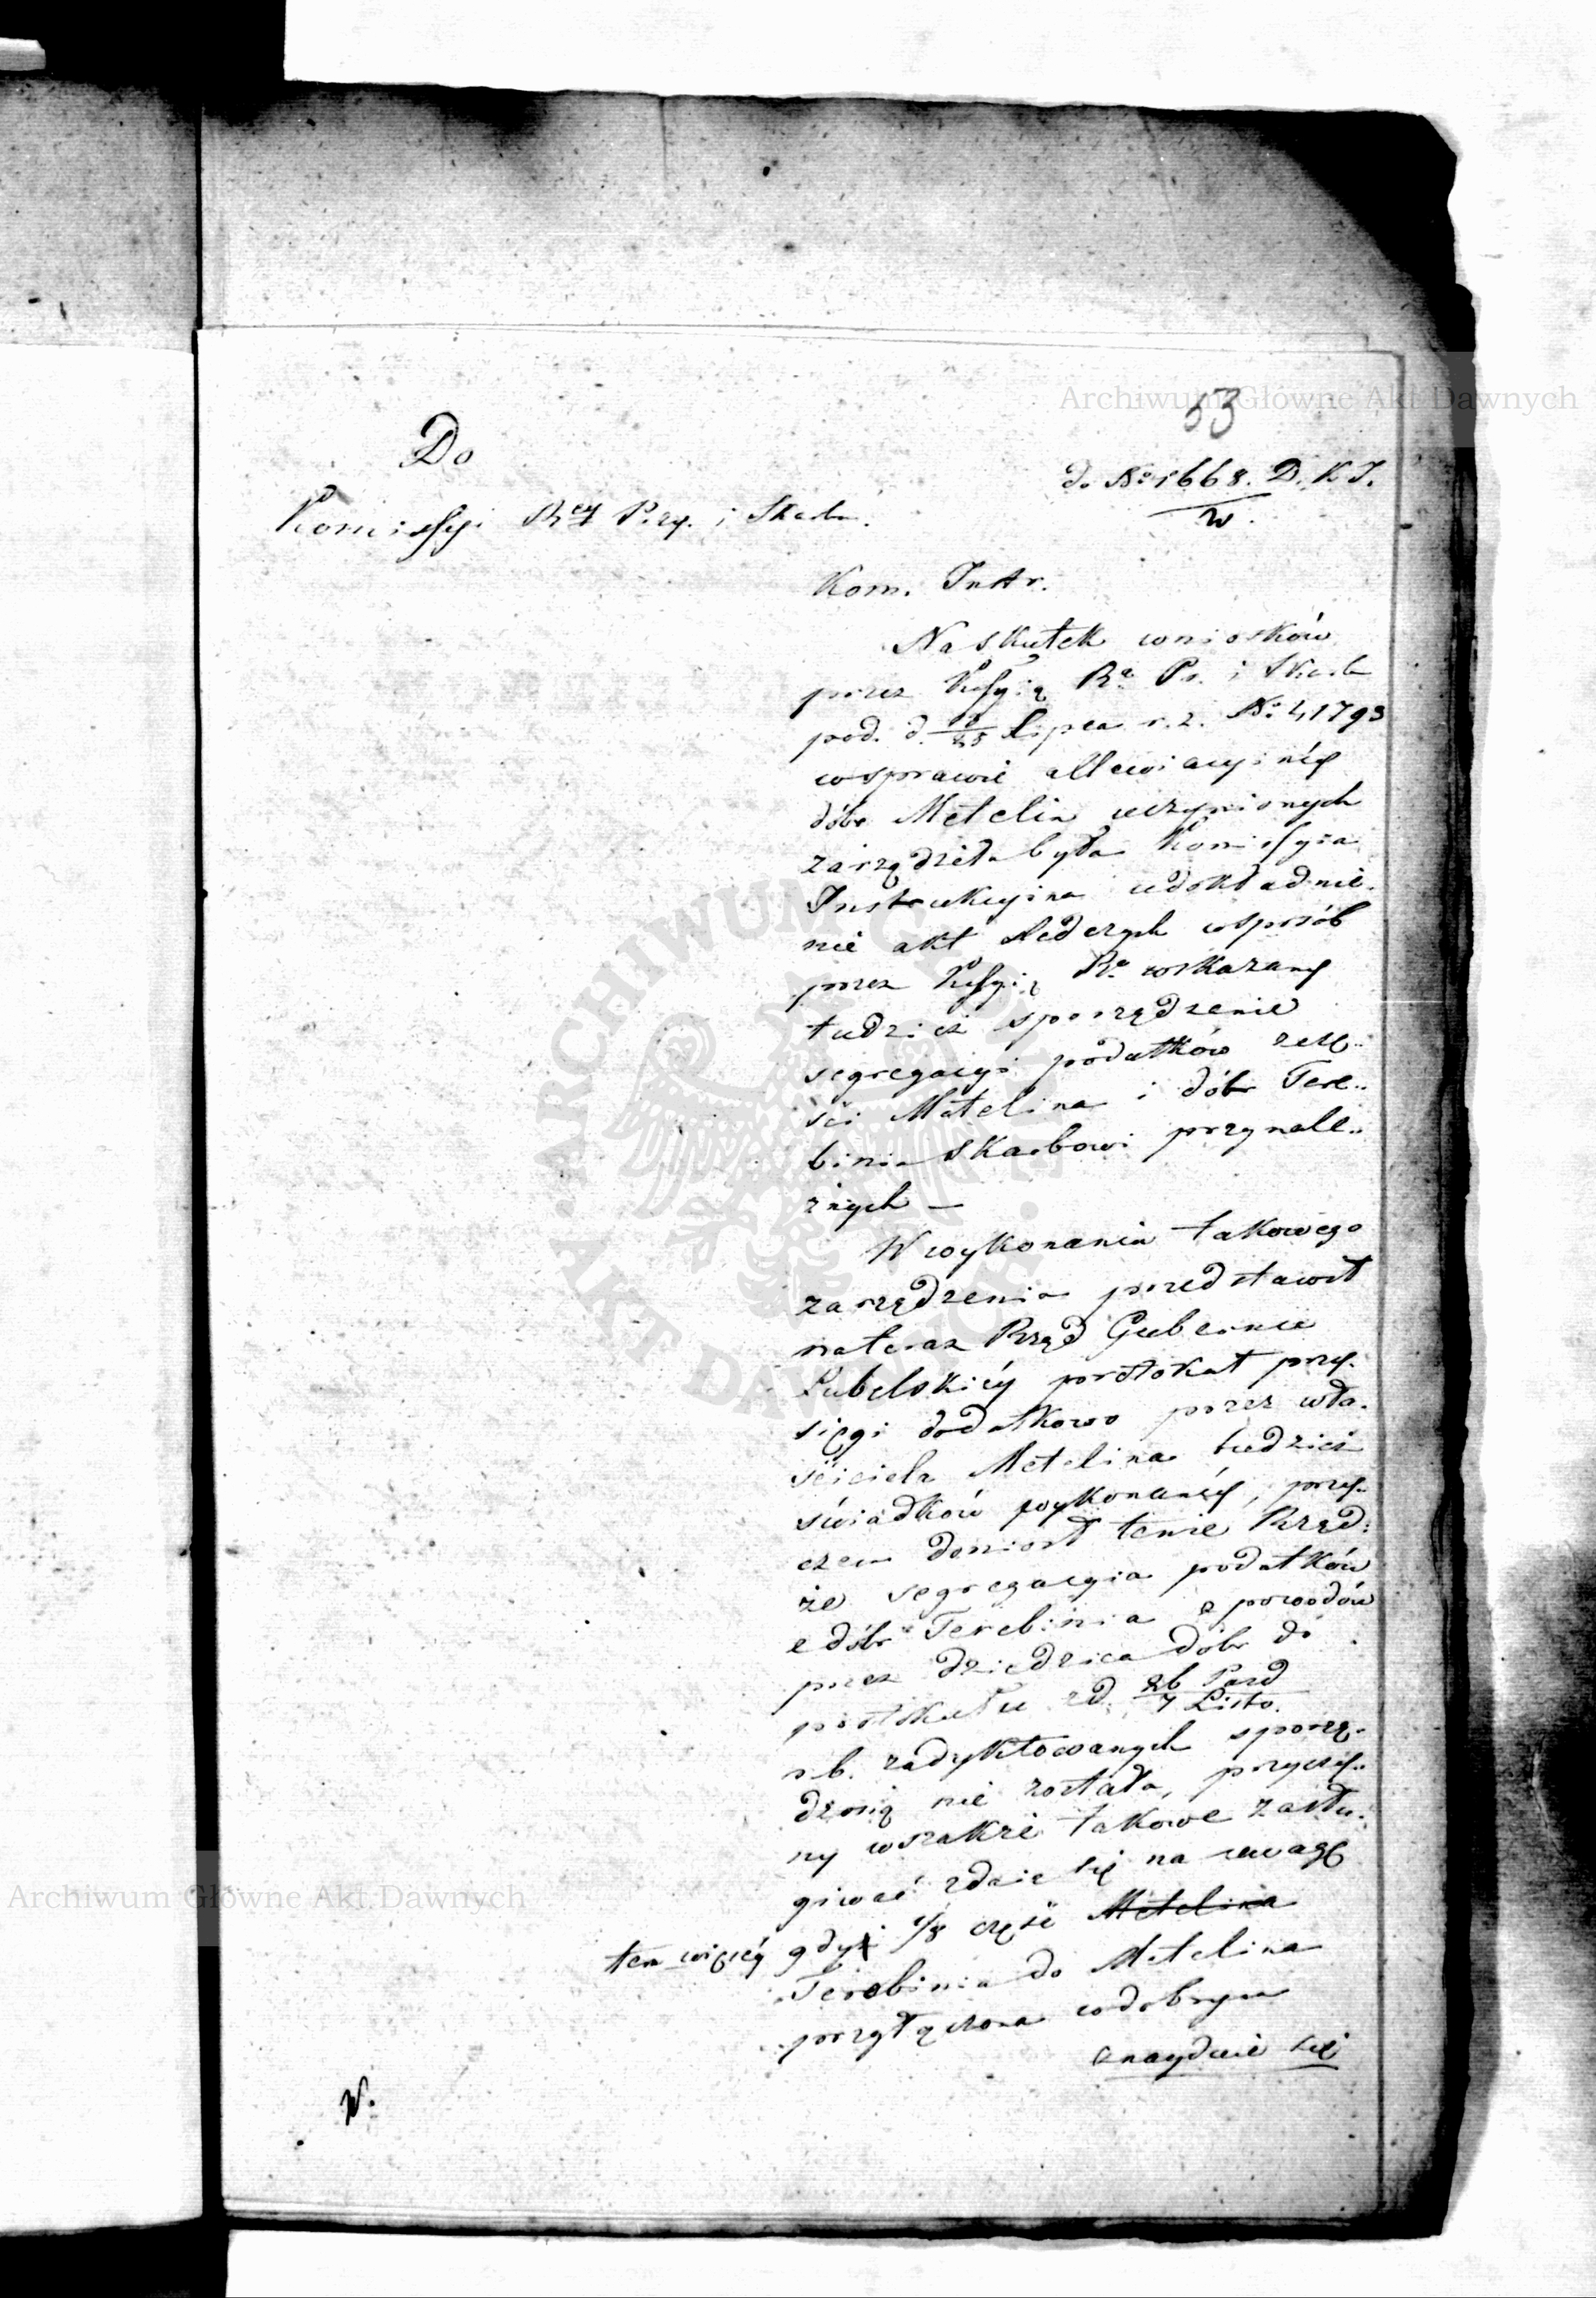 53
Do
Komissyi Rey Przy. i Skarbu.
do No 1668. D. K. I.
W.
Kom. Instr.
Na skutek wniosków
przez Kssyią Ra. Pr. i Skarb
pod. d. 13/25 Lipca r. z. No 41793
w sprawie allewiacyinéy
dóbr Metelin uczynionych
zarządziła była Kommissyia
Instrukcyina udokładnie-
nie akt śledczych w sposób
przez Kssyią Ra wskazany
tudzież sporządzenie
segregacyi podatków z czę-
ści Metelina i dóbr Tere-
binia Skarbowi przynale-
żnych —
W wykonaniu takowego
zarządzenia przedstawił
nateraz Rząd Gubernii
Lubelskiéy protokół przy-
sięgi dodatkowo przez wła-
ściciela Metelina tudzież
świadków wykonanéy, przy-
czem doniósł tenże Rząd
że segregacyia podatków
z dóbr Terebinia z powodów
przez dziedzica dóbr do
protokułu z d. 26 Paźd / 7 Listo.
r. b. zadyktowanych sporzą-
dzoną nie została, przyczy-
ny wszakże takowe zasłu-
giwać zdaie się na uwagę
tem więcéy gdyż 1/8 część Metelina
Terebinia do Metelina
przyłączona w dobrym
znayduie się
W.
Archiwum Główne Akt Dawnych
ARCHIWUM GŁÓWNE AKT DAWNYCH
Archiwum Główne Akt Dawnych